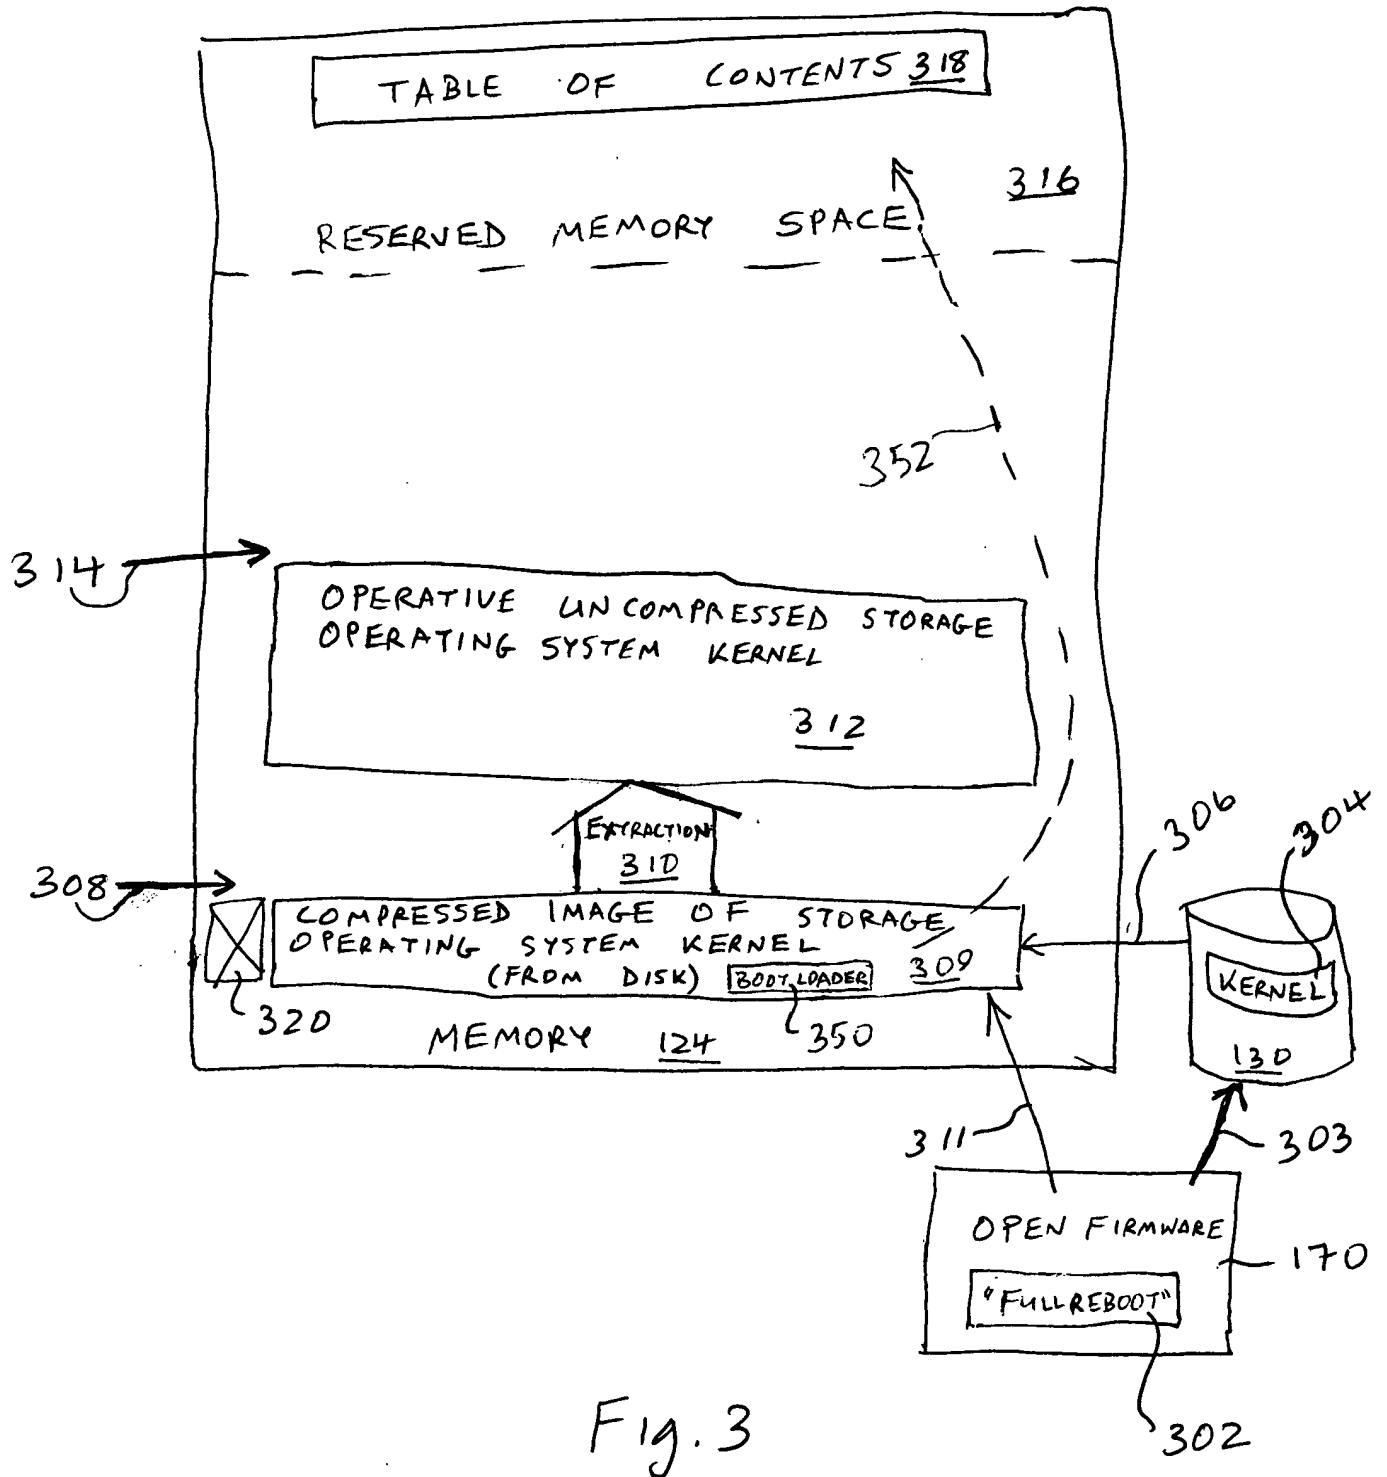 TABLE OF CONTENTS 318
316
RESERVED MEMORY SPACE
352
314
OPERATIVE UNCOMPRESSED STORAGE
OPERATING SYSTEM KERNEL
312
306
304
EXTRACTION
310
308
COMPRESSED IMAGE OF STORAGE
OPERATING SYSTEM KERNEL
(FROM DISK) BOOT LOADER 309
KERNEL
320
MEMORY 124 350
130
311
303
OPEN FIRMWARE
170
"FULLREBOOT"
302
Fig. 3